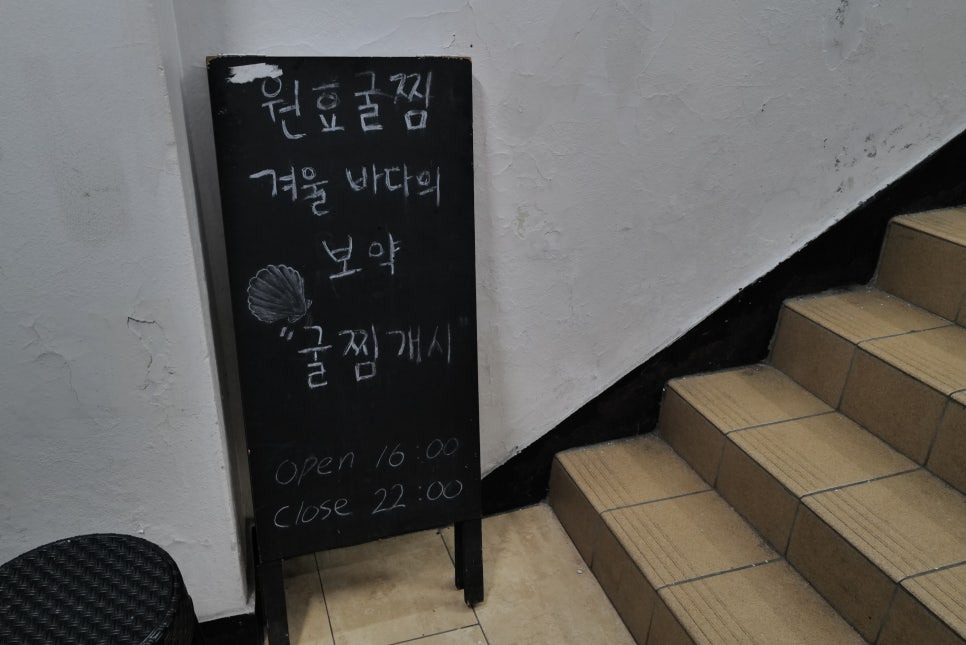 원효굴찜
겨울 바다의
보약
"굴찜개시"
open 16:00
close 22:00